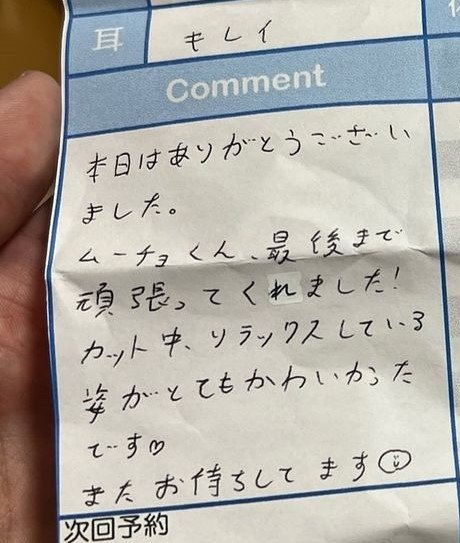 耳 キレイ
Comment
本日はありがとうございい
ました。
ムーチョくん、最後まで
頑張ってくれました!
カット中、リラックスしている
姿がとてもかわいかった
です♡
またお待ちしてます☺
次回予約